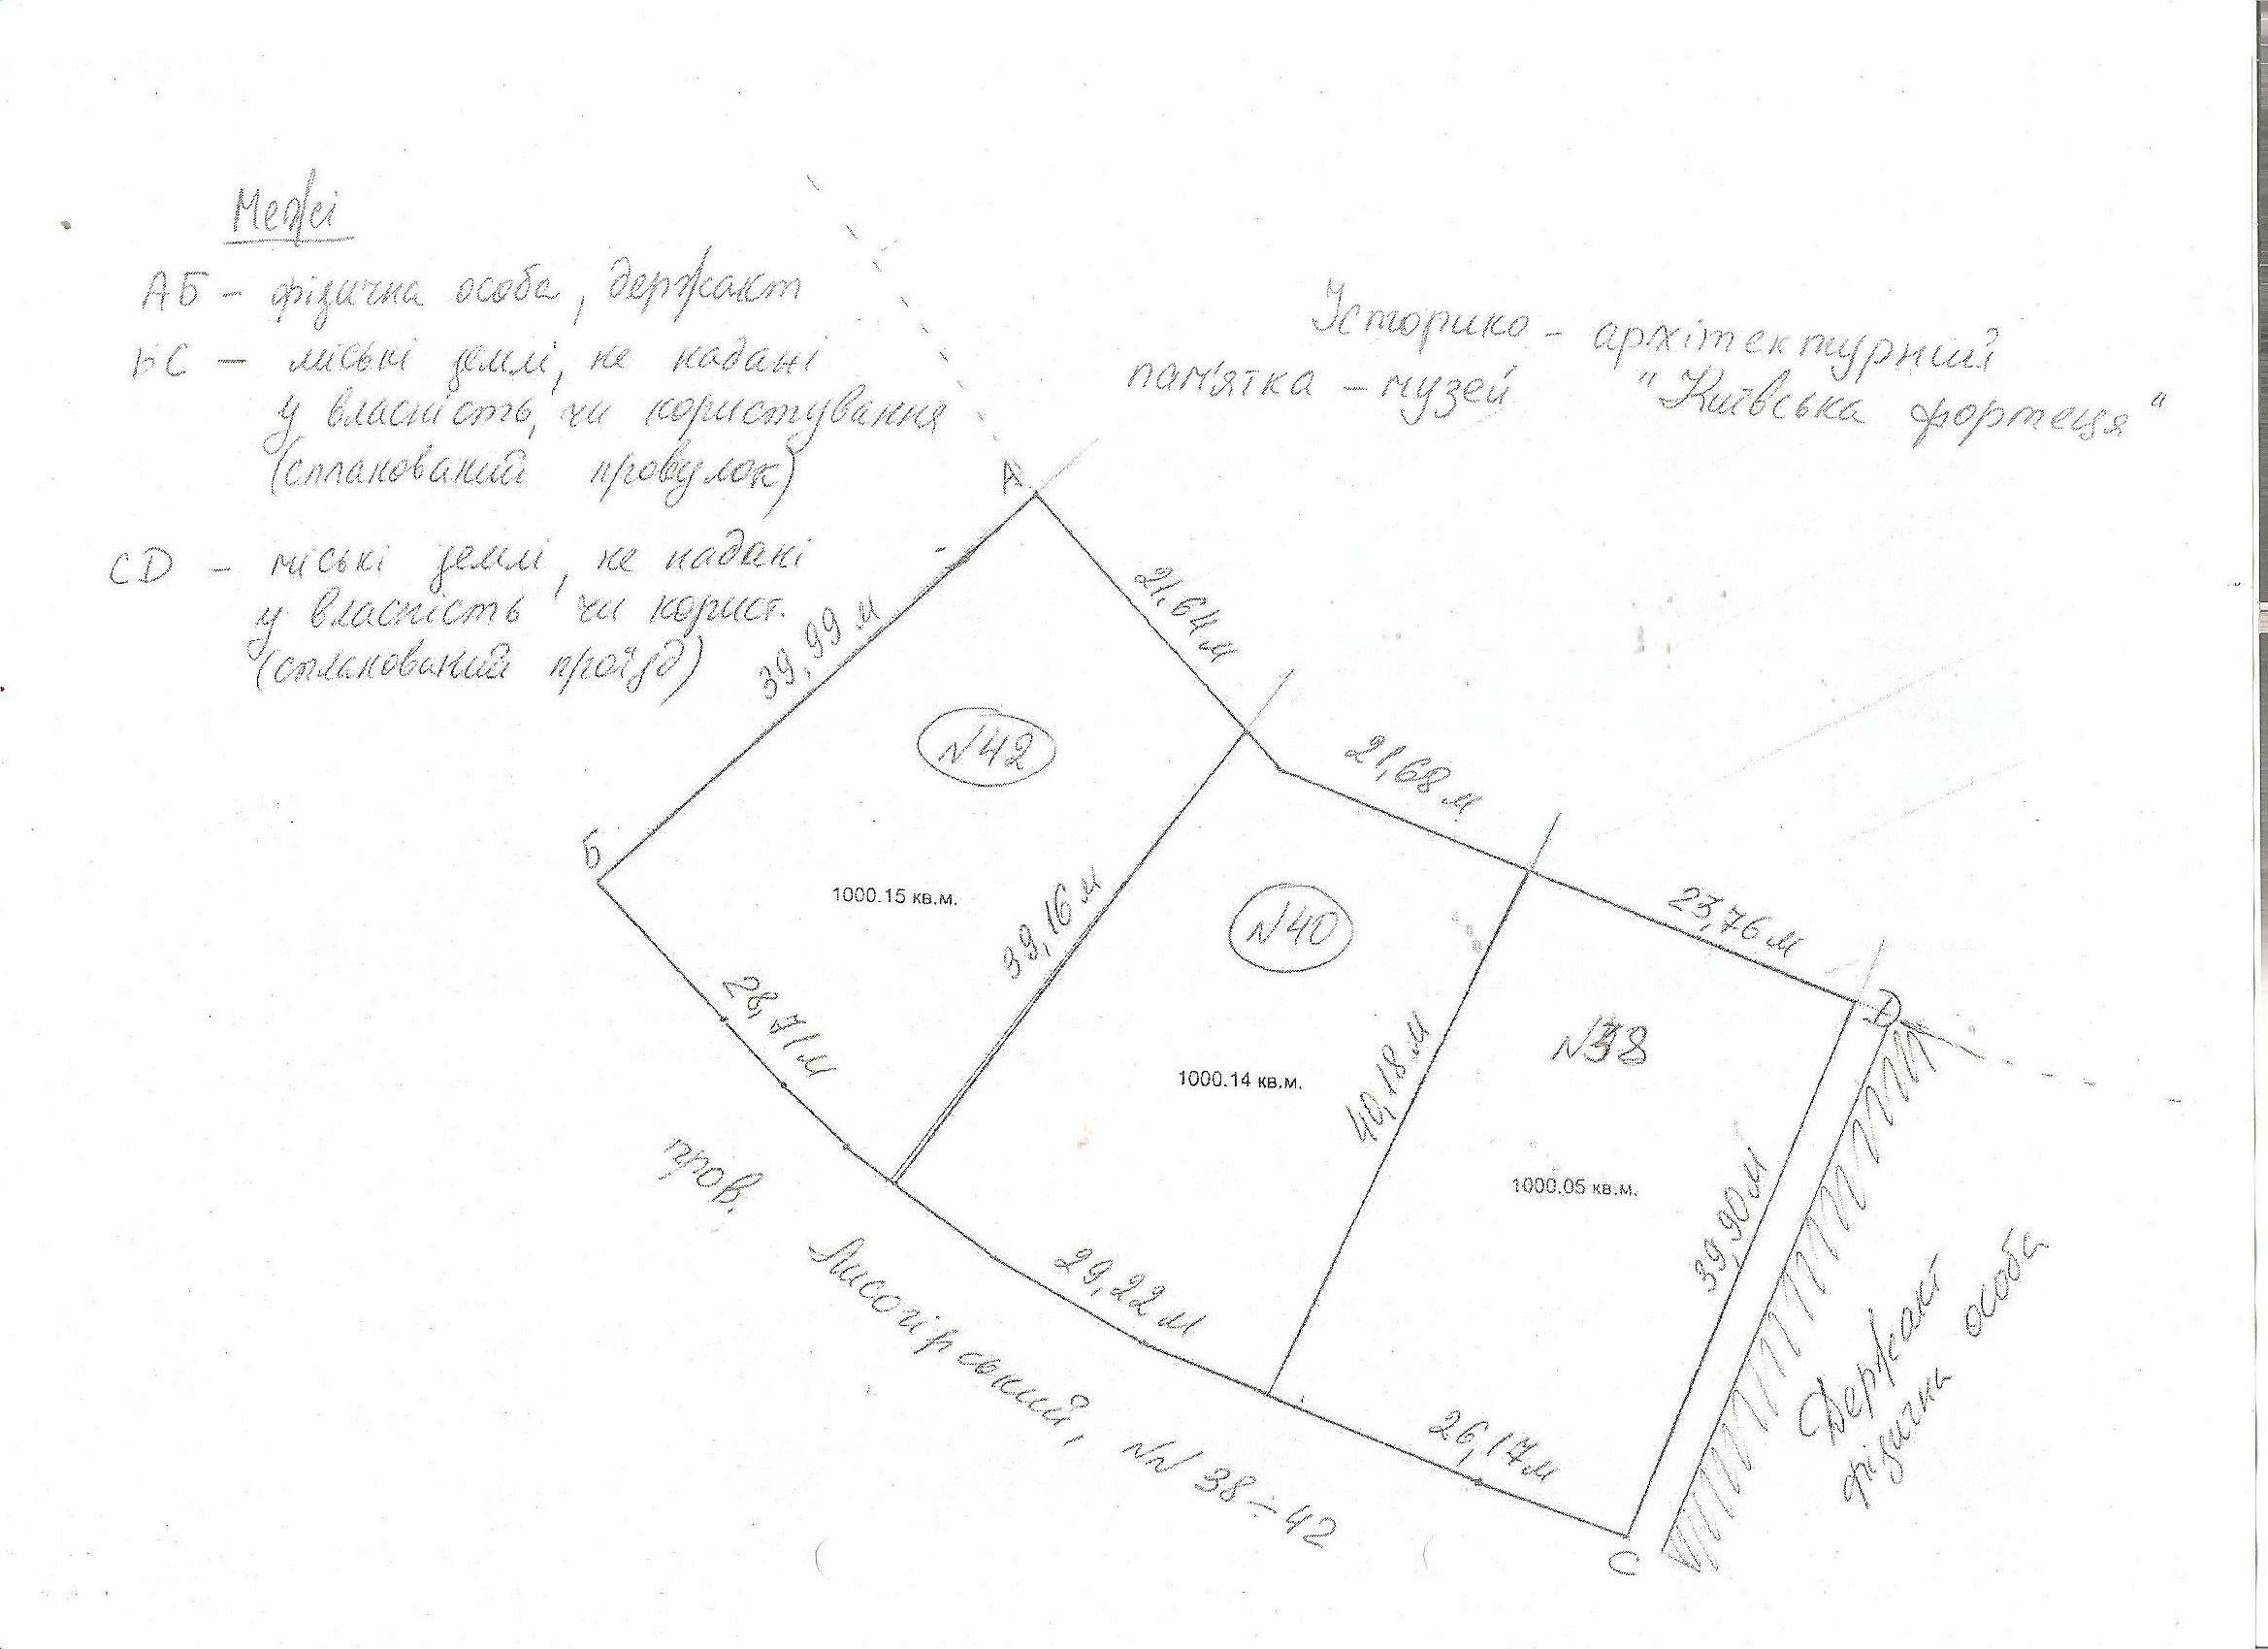 Межі
АБ - фізична особа, держакт
БС - міські землі, не надані
у власність, чи користування
(спланований провулок)
СD - міські землі, не надані
у власність чи корист.
(спланований проїзд)
Історико - архітектурний
пам'ятка - музей "Київська фортеця"
А
21,64 м
39,99 м
N42
21,68 м
Б
1000.15 кв.м.
39,16 м
N40
23,76 м
D
28,71м
N38
1000.14 кв.м.
40,18 м
1000.05 кв.м.
39,90м
29,22 м
26,17м
С
пров. Лисогірський, NN 38÷42
Держакт
фізична особа